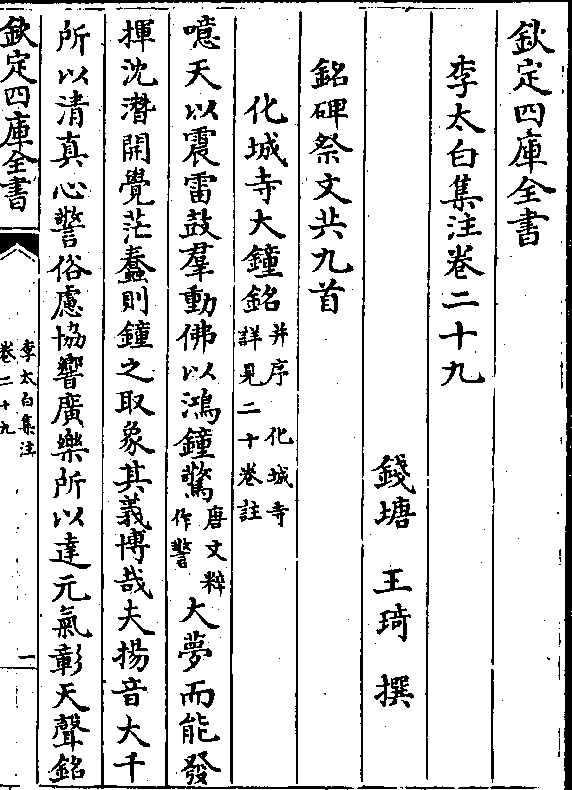 欽定四庫全書
李太白集注卷二十九
錢塘 王琦 撰
銘碑祭文共九首
化城寺大鐘銘并序 化城寺詳見二十卷註
噫天以震雷鼓羣動佛以鴻鐘驚唐文粹作警大夢而能發
揮沈潛開覺茫蠢則鐘之取象其義博哉夫揚音大千
所以清真心警俗慮協響廣樂所以達元氣彰天聲銘
欽定四庫全書
李太白集注
卷二十九
一